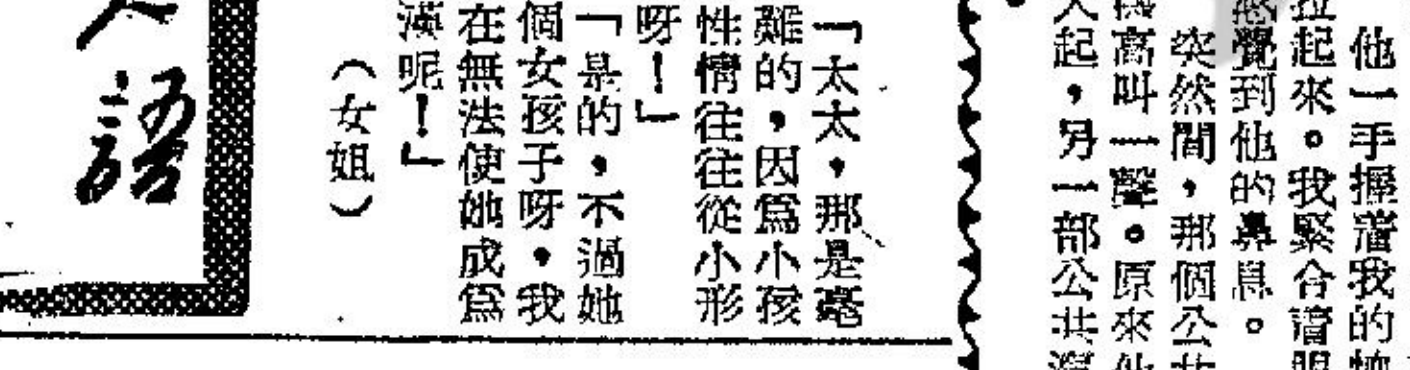 他一手握着我的
拉起來。我緊合着眼
覺到他的鼻息。
突然間,那個公共
高叫一聲。原來他
起,另一部公共
「太太,那是毫
難的,因爲小孩
性情往往從小形
呀!」
「是的,不過她
個女孩子呀。我
在無法使她成爲
漢呢!」
(女姐)
語